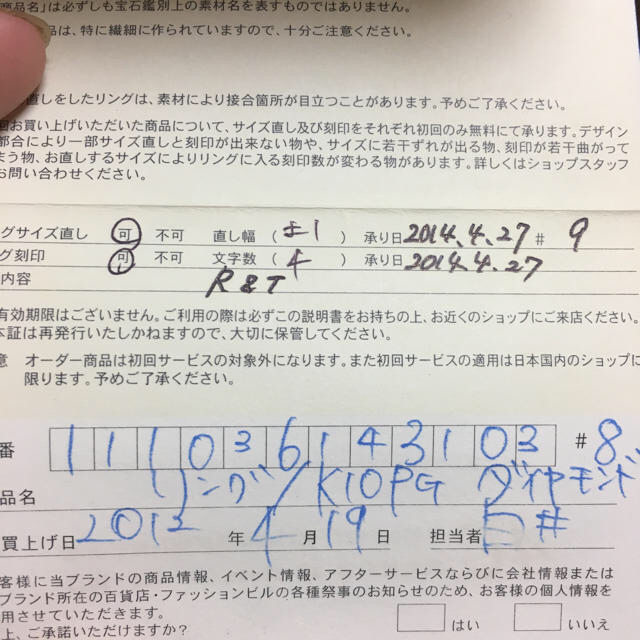 商品名」は必ずしも宝石鑑別上の素材名を表すものではありません。
品は、特に繊細に作られていますので、十分ご注意ください。
直しをしたリングは、素材により接合箇所が目立つことがあります。予めご了承ください。
回お買い上げいただいた商品について、サイズ直し及び刻印をそれぞれ初回のみ無料にて承ります。デザイン
都合により一部サイズ直しと刻印が出来ない物や、サイズに若干ずれが出る物、刻印が若干曲がって
まう物、お直しするサイズによりリングに入る刻印数が変わる物があります。詳しくはショップスタッフ
お問い合わせください。
グサイズ直し 可 不可 直し幅 ( ±1 ) 承り日 2014.4.27 # 9
グ刻印 可 不可 文字数 ( 4 ) 承り日 2014.4.27
内容 R&T
有効期限はございません。ご利用の際は必ずこの説明書をお持ちの上、お近くのショップにご来店ください。
本証は再発行いたしかねますので、大切に保管してください。
意 オーダー商品は初回サービスの対象外になります。また初回サービスの適用は日本国内のショップに
限ります。予めご了承ください。
番 111036143103 # 8
品名 リング/K10PG ダイヤモンド
買上げ日 2012 年 4 月 19 日 担当者 白井
客様に当ブランドの商品情報、イベント情報、アフターサービスならびに会社情報または
ブランド所在の百貨店・ファッションビルの各種祭事のお知らせのため、お客様の個人情報を
用させていただきます。
上、ご承諾いただけますか? はい いいえ